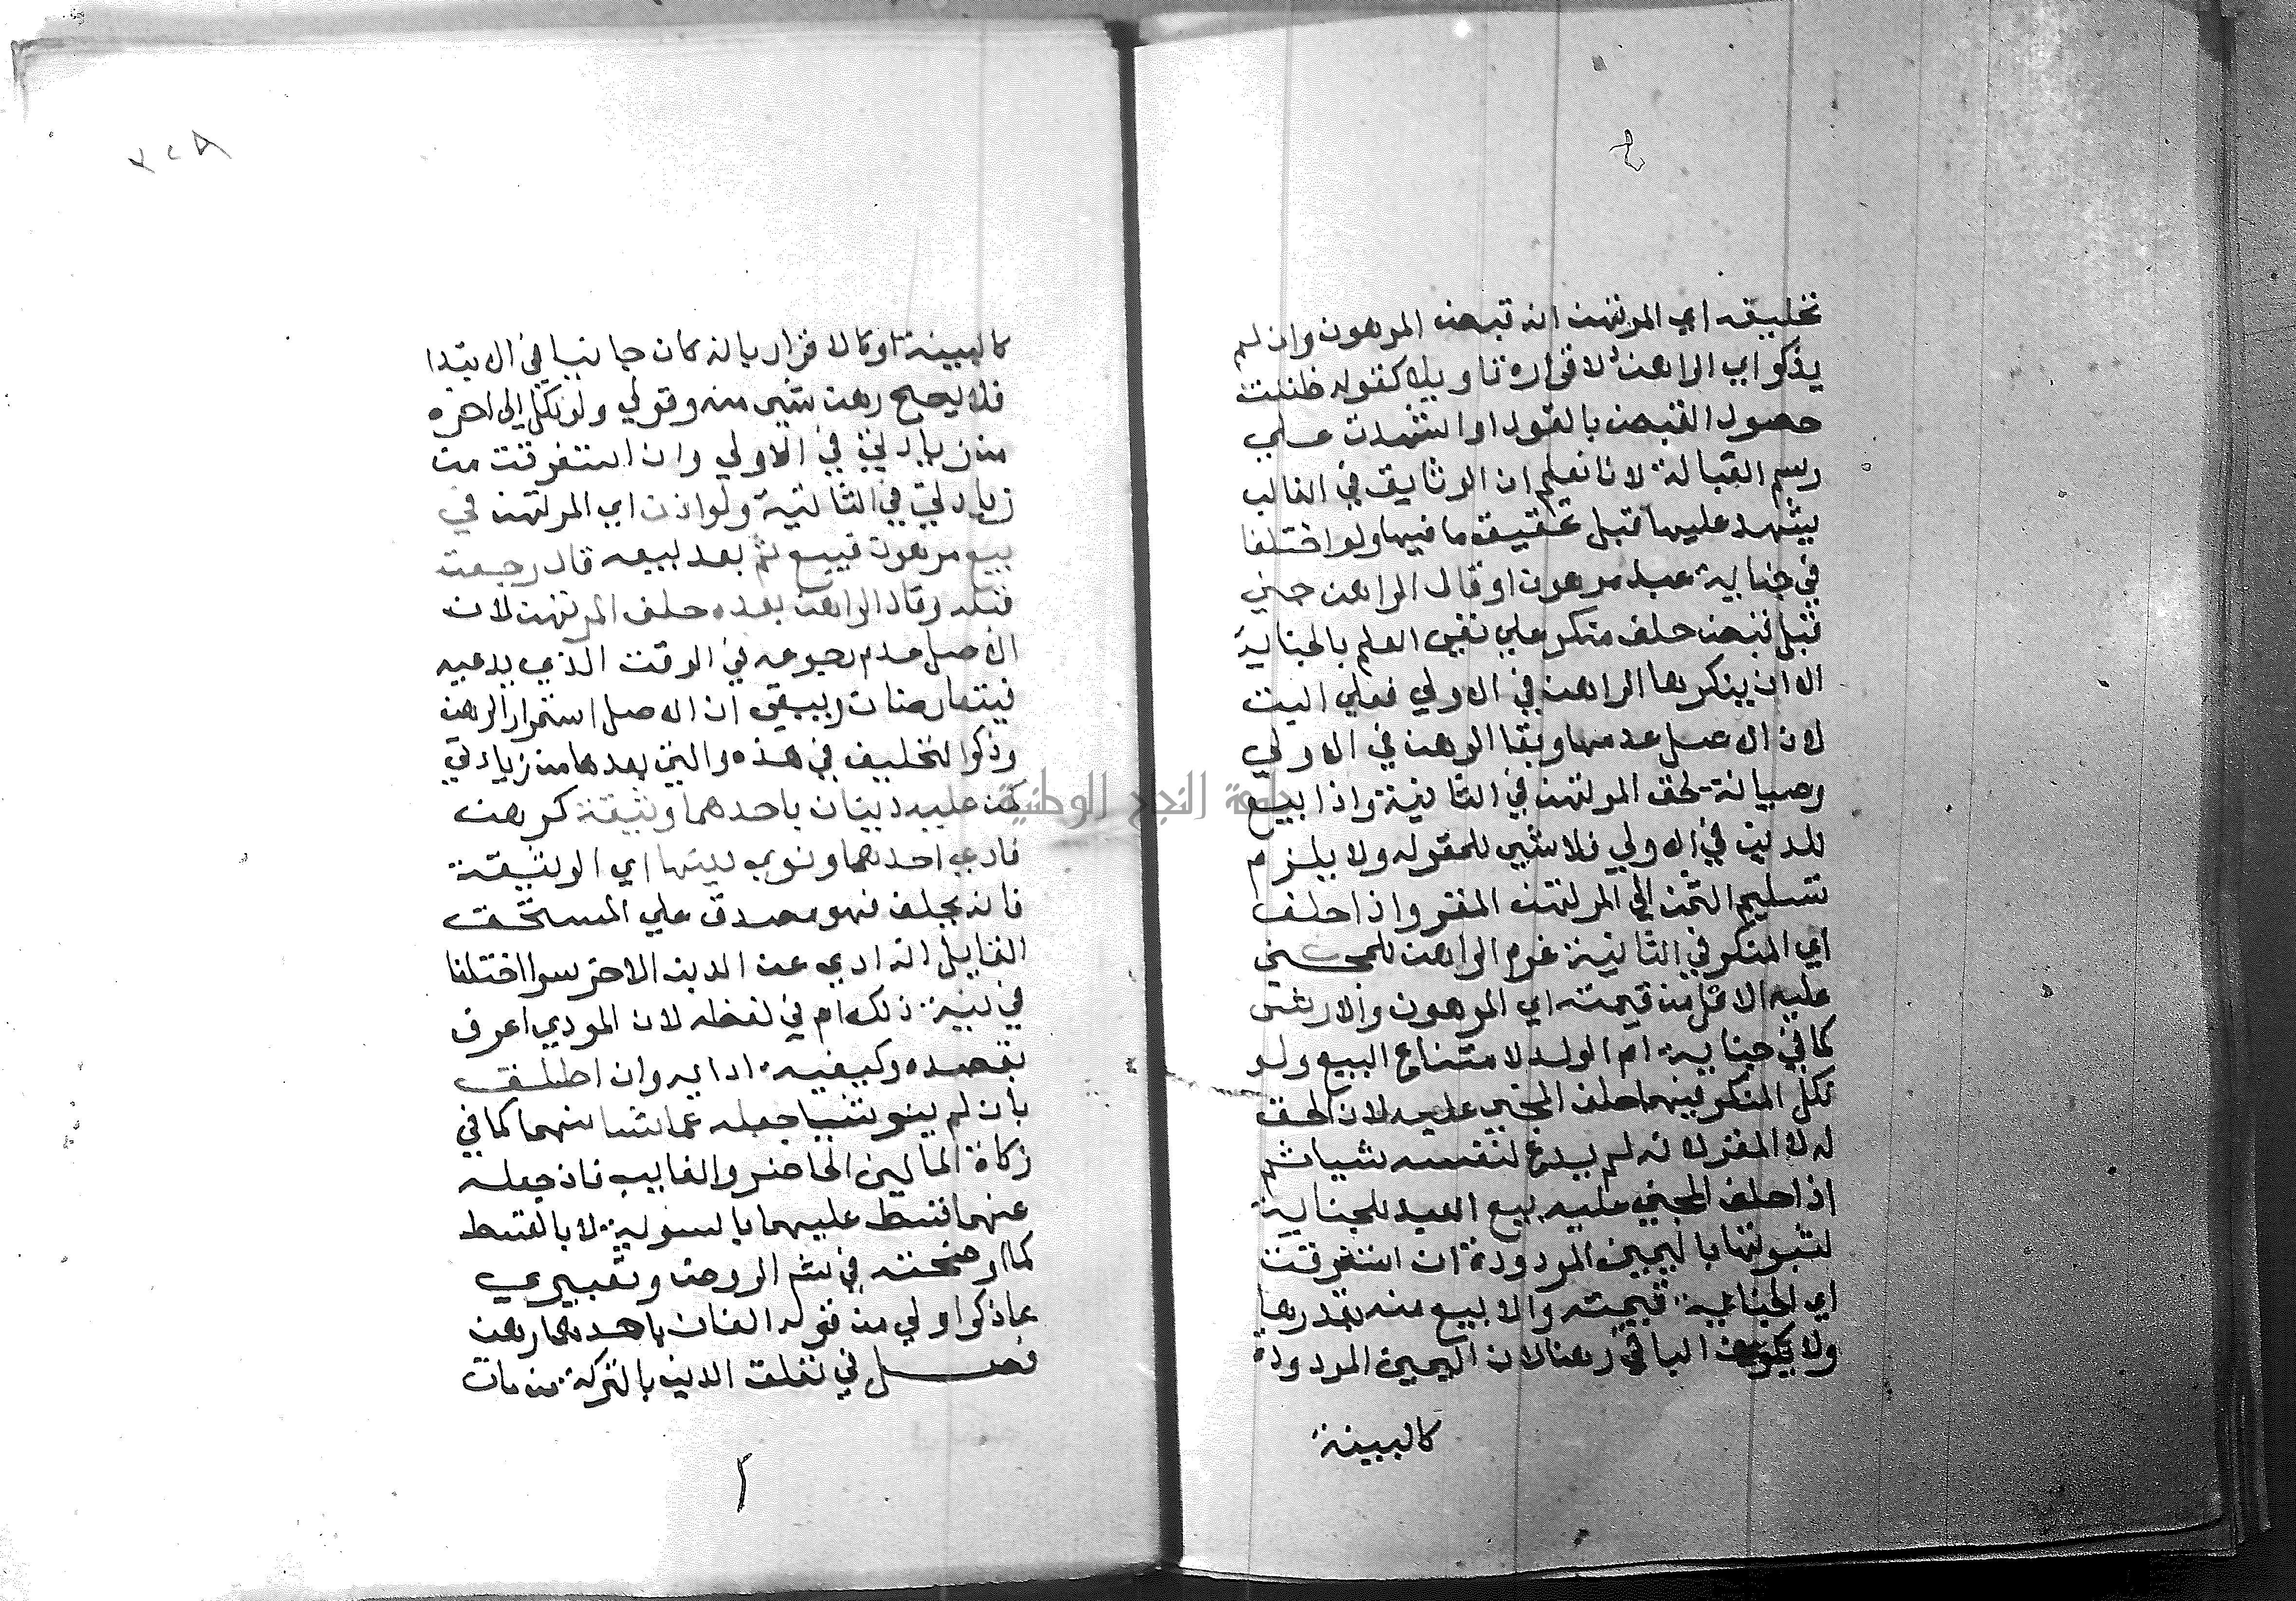 تحليفه اي المرتهن انه قبض المرهون وان لم
يذكر اي الراهن لاقراره تاويلا كقوله ظننت
حصول القبض بالقول او اشهدت علي
رسم القبالة لانا نعلم ان الوثايق في الغالب
يشهد عليها قبل تحقيق ما فيها ولو اختلفا
في جناية عبد مرهون او قال الراهن جني
قبل قبض حلف منكر علي نفي العلم بالجناية
الا ان ينكرها الراهن في الاولي فعلي البت
لان الاصل عدمها وبقا الرهن في الاولي
وصيانة لحق المرتهن في الثانية واذا بيع
للدين في الاولي فلا شي للمقر له ولا يلزم
تسليم الثمن الي المرتهن المقر واذا حلف
اي المنكر في الثانية غرم الراهن للمجني
عليه الاقل من قيمته اي المرهون والارش
كما في جناية ام الولد لامتناع البيع ولو
نكل المنكر فيهما حلف المجني عليه لان الحق
له لا المقر لانه لم يدع لنفسه شيا ثم
اذا حلف المجني عليه بيع العبد للجناية
لثبوتها باليمين المردودة ان استغرقت
اي الجناية قيمته والا بيع منه بقدرها
ولا يكون الباقي رهنا لان اليمين المردودة
كالبينة
٢٠٨
كالبينة او كالاقرار بانه كان جانيا في الابتدا
فلا يصح رهن شي منه وقولي ولو نكل الي اخره
من زيادتي في الاولي وان استغرقت من
زيادتي في الثانية ولو اذن اي المرتهن في
بيع مرهون فبيع ثم بعد بيعه قال رجعت
قبله وقال الراهن بعده حلف المرتهن لان
الاصل عدم رجوعه في الوقت الذي يدعيه
فيتعارضان ويبقي ان الاصل استمرار الرهن
وذكر التحليف في هذه والتي بعدها من زيادتي
كمن عليه دينان باحدهما وثيقة كرهن
فادي احدهما ونوي دينها اي الوثيقة
فانه يحلف فهو مصدق علي المستحق
القايل انه ادي عن الدين الاخر سوا اختلفا
في نية ذلك ام في لفظه لان المودي اعرف
بقصده وكيفية ادايه وان اطلق
بان لم ينو شيا جعله عما شا منهما كما في
زكاة المالين الحاضر والغايب فان جعله
عنهما قسط عليهما بالسوية لا بالقسط
كما اوضحته في شرح الروض وتعبيري
بما ذكر اولي من قوله الفان باحدهما رهن
فصل في تعلق الدين بالتركة من مات